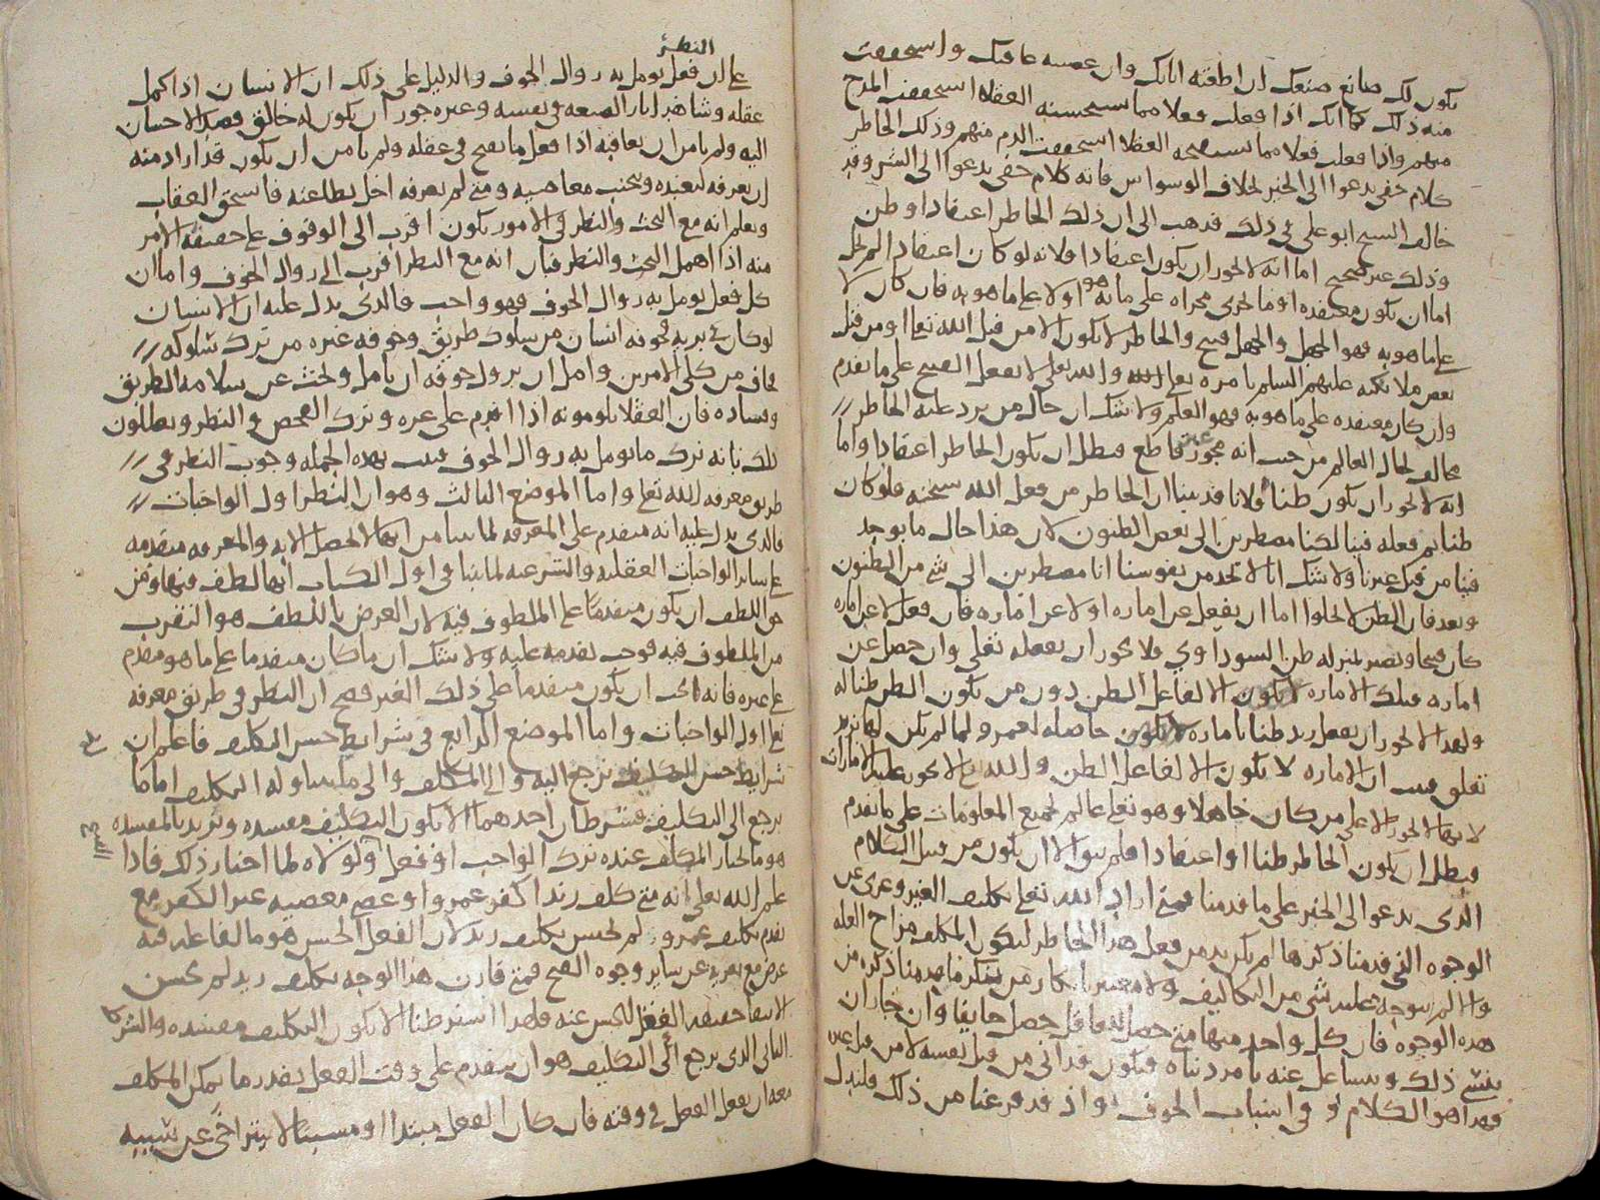 يكون لك صانع صنعك ان اطعته اثابك وان عصيته عاقبك واستحققت
منه ذلك كما انك اذا فعلت فعلا مما يستحسنه العقلاء استحققت المدح
منهم واذا فعلت فعلا مما يستقبحه العقلا استحققت الذم منهم وذلك الخاطر
كلام خفي يدعوا الى الخير بخلاف الوسواس فانه كلام خفي يدعوا الى الشر وقد
خالف الشيخ ابو علي في ذلك فذهب الى ان ذلك الخاطر اعتقاد او ظن
وذلك غير صحيح اما انه لا يجوز ان يكون اعتقادا فلانه لو كان اعتقادا لم يخل
اما ان يكون معتقده او ما يجري مجراه على ما هو به او لا على ما هو به فان كان لا
على ما هو به فهو الجهل والجهل قبيح والخاطر لا يكون الا من قبل الله تعالى او من قبل
بعض ملائكته عليهم السلم بامره تعالى والله تعالى لا يفعل القبيح على ما تقدم
وان كان معتقده على ما هو به فهو العلم ولا شك ان حال من يرد عليه الخاطر
مخالف لحال العالم من حيث انه مجوز غير قاطع فبطل ان يكون الخاطر اعتقادا واما
انه لا يجوز ان يكون ظنا فلانا قد بينا ان الخاطر من فعل الله سبحنه فلو كان
ظنا ثم فعله فينا لكنا مضطرين الى بعض الظنون لان هذا حال ما يوجد
فينا من قبل غيرنا ولا شك انا لا نجد من نفوسنا انا مضطرين الى شي من الظنون
وبعد فان الظن لا يخلوا اما ان يفعل عن اماره او لا عن اماره فان فعل لا عن اماره
كان قبيحا ويصير بمنزله ظن السوداوي فلا يجوز ان يفعله تعالى وان حصل عن
اماره فتلك الاماره لا يكون الا لفاعل الظن دون من يكون الظن ظنا له
ولهذا لا يجوز ان يفعل زيد ظنا باماره حاصله لعمرو لما لم يكن لها بزيد
تعلق فبان ان الاماره لا يكون الا لفاعل الظن والله تع لا يجوز عليه الامارات
لانها لا تجوز الا على من كان جاهلا وهو تعالى عالم بجميع المعلومات على ما تقدم
فبطل ان يكون الخاطر ظنا او اعتقادا فلم يبق الا ان يكون من قبيل الكلام
الذي يدعو الى الخير على ما قدمنا فمتى اراد الله تعالى تكليف الغير وعري عن
الوجوه التي قدمنا ذكرها لم يكن بد من فعل هذا الخاطر ليكون المكلف مزاح العله
والا لم يتوجه عليه شي من التكاليف ولا معتبر بانكار من ينكر ما قدمنا ذكره من
هذه الوجوه فان كل واحد منها متى حصل للعاقل حصل خايفا وان جاز ان
ينسى ذلك ويتشاغل عنه بامر دنياه فيكون قد اتي من قبل نفسه لا من قبل غيره
فهذا هو الكلام في اسباب الخوف واذ قد فرغنا من ذلك فلندل
النظر
على ان فعل يومل به زوال الخوف والدليل على ذلك ان الانسان اذا كمل
عقله وشاهد اثار الصنعه في نفسه وغيره جوز ان يكون له خالق قصد الاحسان
اليه ولم يامن ان يعاقبه اذا فعل ما يقبح في عقله ولم يامن ان يكون قد اراد منه
ان يعرفه ليعبده ويجتنب معاصيه ومتى لم يعرفه اخل بطاعته فاستحق العقاب
ويعلم انه مع البحث والنظر في الامور يكون اقرب الى الوقوف على حقيقه الامر
منه اذا اهمل البحث والنظر فبان انه مع النظر اقرب الى زوال الخوف واما ان
كل فعل يومل به زوال الخوف فهو واجب فالذي يدل عليه ان الانسان
لو كان في بريه فخوفه انسان من سلوك طريق وخوفه غيره من ترك سلوكه
فخاف من كلى الامرين وامل ان يزول خوفه ان يامل وبحث عن سلامه الطريق
وفساده فان العقلا يلومونه اذا اقدم على غره وترك الفحص والنظر ويعللون
ذلك بانه ترك ما يومل به زوال الخوف فثبت بهذه الجمله وجوب النظر في
طريق معرفه الله تعالى واما الموضع الثالث وهو ان النظر اول الواجبات
فالذي يدل عليه انه متقدم على المعرفه لما بينا من انها لا تحصل الا به والمعرفه متقدمه
على ساير الواجبات العقليه والشرعيه لما بينا في اول الكتاب انها لطف فيها ومن
حق اللطف ان يكون متقدما على الملطوف فيه لان الغرض باللطف هو التقرب
من الملطوف فيه فوجب تقدمه عليه ولا شك ان ما كان متقدما على ما هو متقدم
على غيره فانه يجب ان يكون متقدما على ذلك الغير فصح ان النظر في طريق معرفه
تعالى اول الواجبات واما الموضع الرابع في شرايط حسن التكليف فاعلم ان
شرايط حسن التكليف ترجع اليه والى المكلف والى ما يتناوله التكليف اما ما
يرجع الى التكليف فشرطان احدهما الا يكون التكليف مفسده ونريد بالمفسده
هو ما يختار المكلف عنده ترك الواجب او فعل ولولاه لما اختار ذلك فاذا
القبيح
علم الله تعالى انه متى كلف زيدا كفر عمرو او عصى معصيه غير الكفر مع
تقدم تكليف عمرو لم يحسن تكليف زيد لان الفعل الحسن هو ما لفاعله فيه
غرض مع تعريه عن ساير وجوه القبح فمتى قارن هذا الوجه تكليف زيد لم يحسن
لانتفا حقيقه الفعل الحسن عنه فلهذا اشترطنا الا يكون التكليف مفسده والشرط
الثاني الذي يرجع الى التكليف هو ان يتقدم على وقت الفعل بقدر ما يمكن المكلف
معه ان يفعل الفعل في وقته فان كان الفعل مبتدا او مسببا لا يتراخى عن سببه